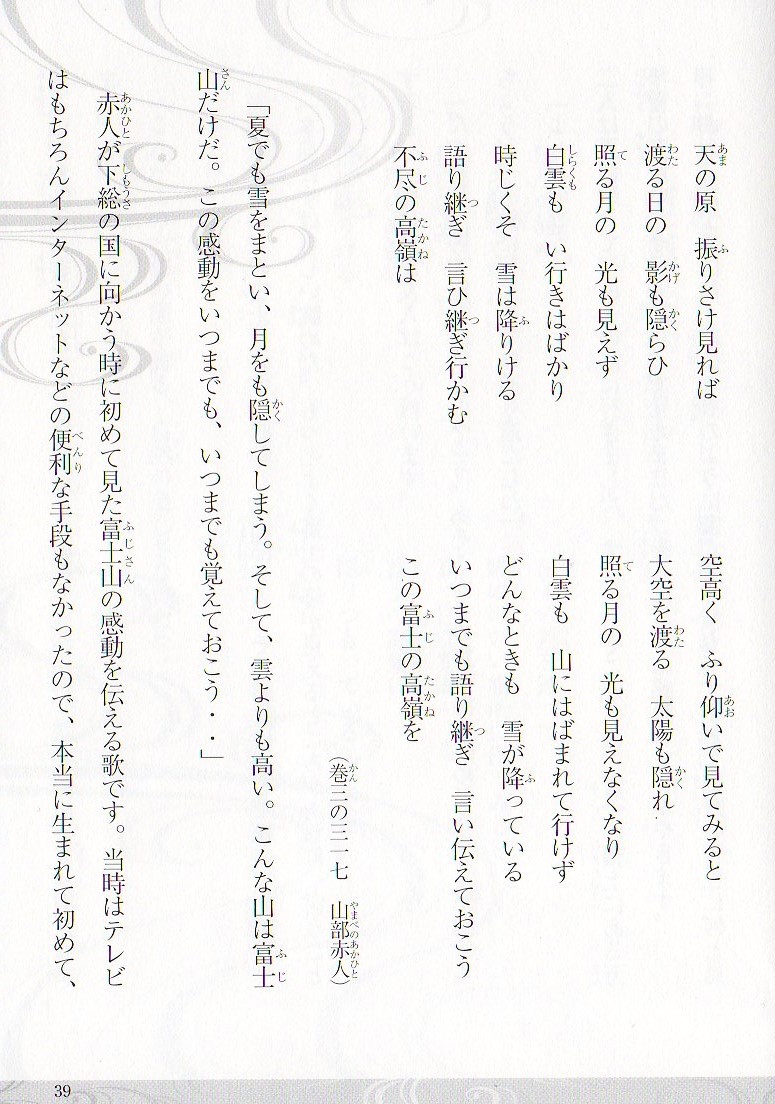 天の原　振りさけ見れば
渡る日の　影も隠らひ
照る月の　光も見えず
白雲も　い行きはばかり
時じくそ　雪は降りける
語り継ぎ　言ひ継ぎ行かむ
不尽の高嶺は
空高く　ふり仰いで見てみると
大空を渡る　太陽も隠れ
照る月の　光も見えなくなり
白雲も　山にはばまれて行けず
どんなときも　雪が降っている
いつまでも語り継ぎ　言い伝えておこう
この富士の高嶺を
（巻三の三一七　山部赤人）
「夏でも雪をまとい、月をも隠してしまう。そして、雲よりも高い。こんな山は富士
山だけだ。この感動をいつまでも、いつまでも覚えておこう・・」
赤人が下総の国に向かう時に初めて見た富士山の感動を伝える歌です。当時はテレビ
はもちろんインターネットなどの便利な手段もなかったので、本当に生まれて初めて、
39